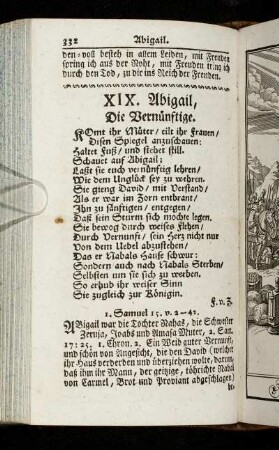 332 Abigail.
den-voll besteh in allem Leiden, mit Freuden
spring ich aus der Noht, mit Freuden tring ich
durch den Tod, zu dir ins Reich der Freuden.
XIX. Abigail,
Die Vernünftige.
KOmt ihr Mütter/ eilt ihr Frauen/
Disen Spiegel anzuschauen:
Haltet Fuß/ und stehet still.
Schauet auf Abigail:
Laßt sie euch vernünftig lehren/
Wie dem Unglück sey zu wehren.
Sie gieng David/ mit Verstand/
Als er war im Zorn entbrant/
Ihn zu sänftigen/ entgegen/
Daß sein Sturm sich mochte legen.
Sie bewog durch weises Flehen/
Durch Vernunft/ sein Herz nicht nur
Von dem Uebel abzustehen/
Das er Nabals Hause schwur:
Sondern auch nach Nabals Sterben/
Selbsten um sie sich zu werben.
So erhub ihr weiser Sinn
Sie zugleich zur Königin.
F. v. Z.
1. Samuel 15. v. 2-42.
ABigail war die Tochter Nahas, die Schwester
Zeruja, Joabs und Amasa Muter, 2. Sam.
17: 25. 1. Chron. 2. Ein Weib guter Vernunft,
und schön von Angesicht, die den David (welcher
ihr Haus verderden und überziehen wolte, darum,
daß ihm ihr Mann, der geitzige, töhrichte Nabal
von Carmel, Brot und Proviant abgeschlagen)